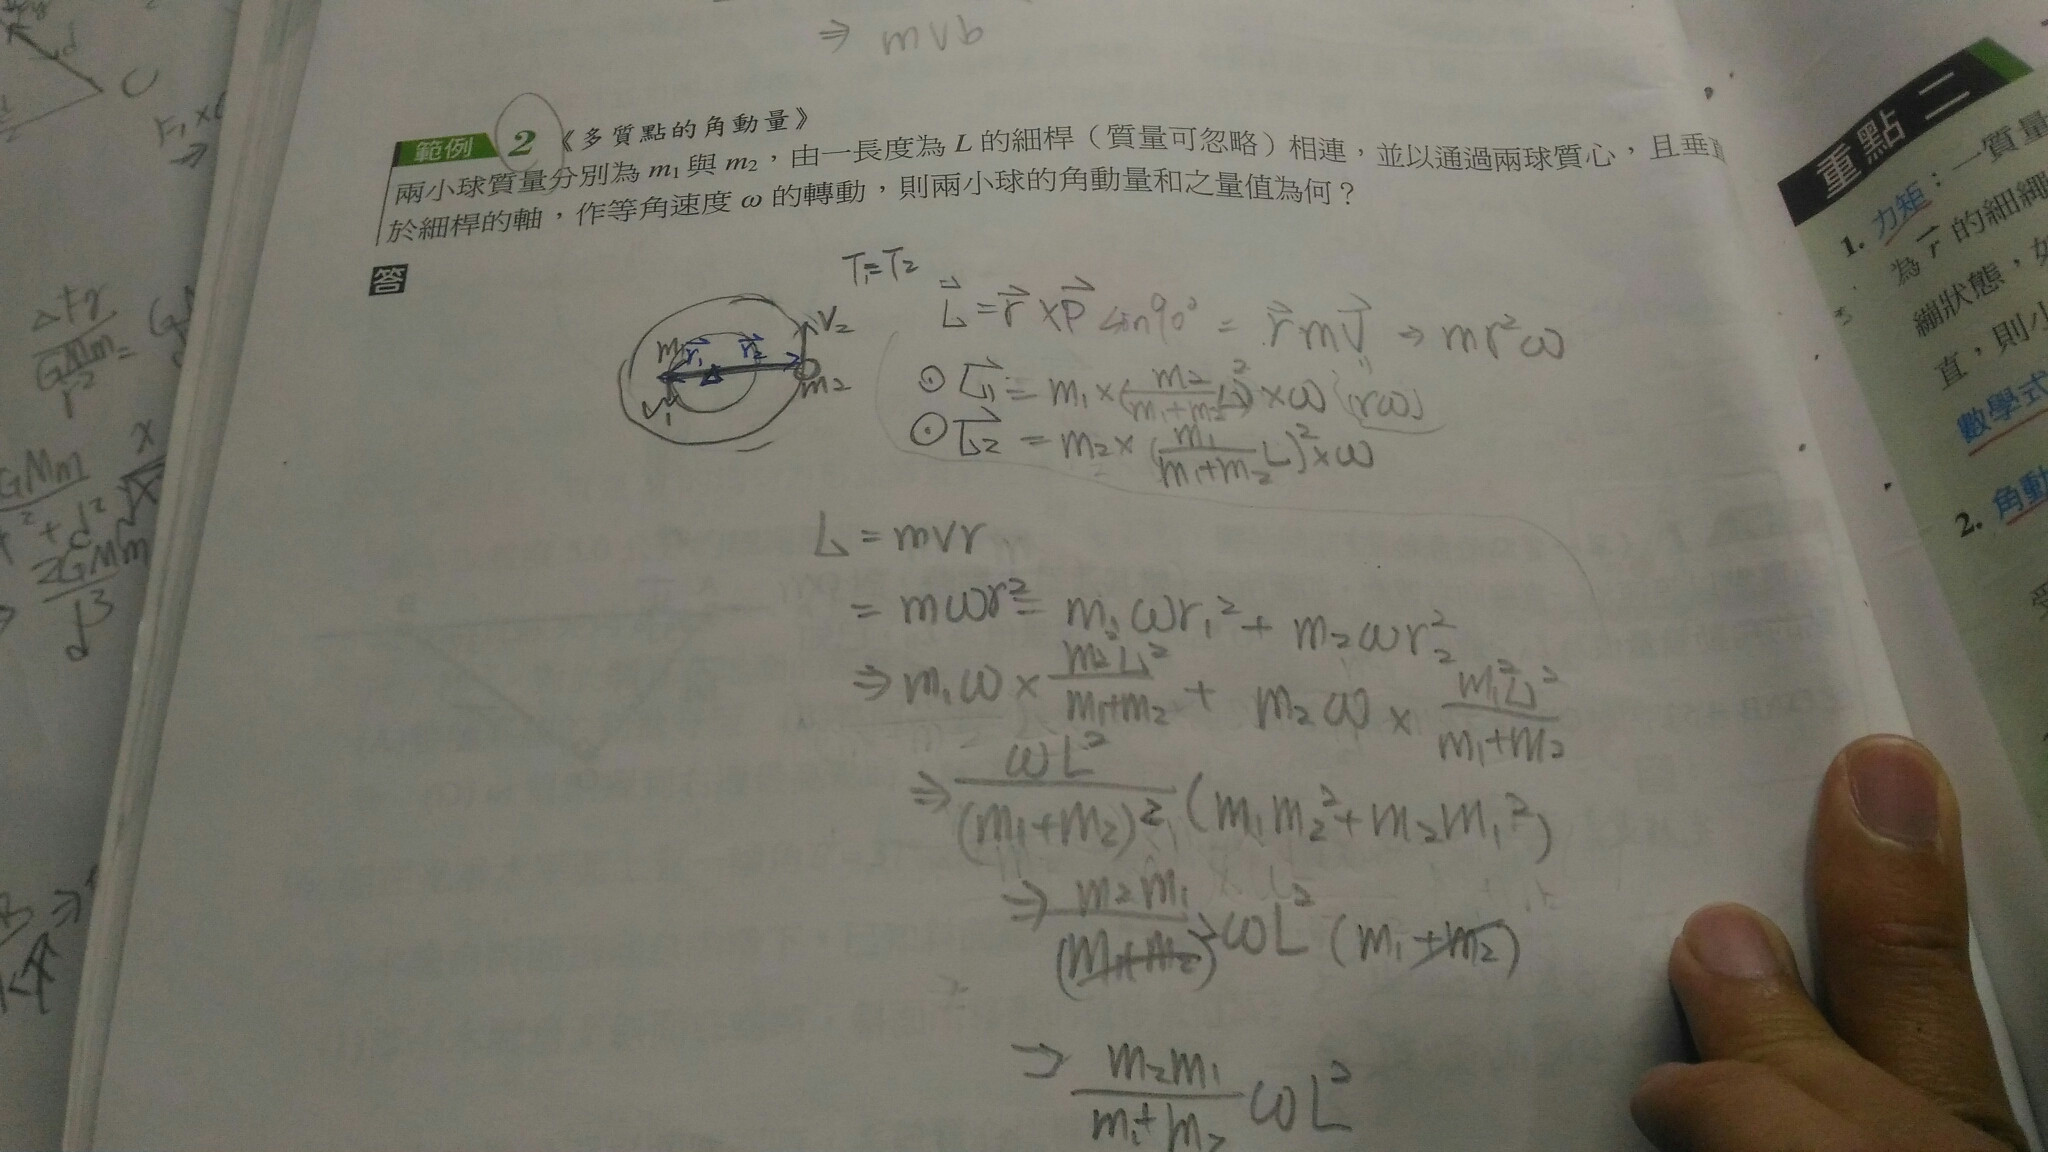 ⇒ mvb
範例 2 《多質點的角動量》
兩小球質量分別為 m₁ 與 m₂，由一長度為 L 的細桿（質量可忽略）相連，並以通過兩球質心，且垂直
於細桿的軸，作等角速度 ω 的轉動，則兩小球的角動量和之量值為何？
答
T₁=T₂
L⃗ = r⃗ × P⃗ sin90° = r⃗ m V⃗ → mr²ω
(rω)
⊙ L⃗₁ = m₁×(m₂/(m₁+m₂) L)²×ω
⊙ L⃗₂ = m₂×(m₁/(m₁+m₂) L)²×ω
m₁ r⃗₁ r⃗₂ V₂
V₁ m₂
L = mvr
= mωr² = m₁ωr₁² + m₂ωr₂²
⇒ m₁ω × m₂²L²/(m₁+m₂) + m₂ω × m₁²L²/(m₁+m₂)
⇒ ωL²/(m₁+m₂)² (m₁m₂²+m₂m₁²)
⇒ m₂m₁/(m₁+m₂)² ωL² (m₁+m₂)
→ m₂m₁/(m₁+m₂) ωL²
重點二
1. 力矩：一質量
為 r⃗ 的細繩
繃狀態，如
直，則小
數學式
2. 角動
受